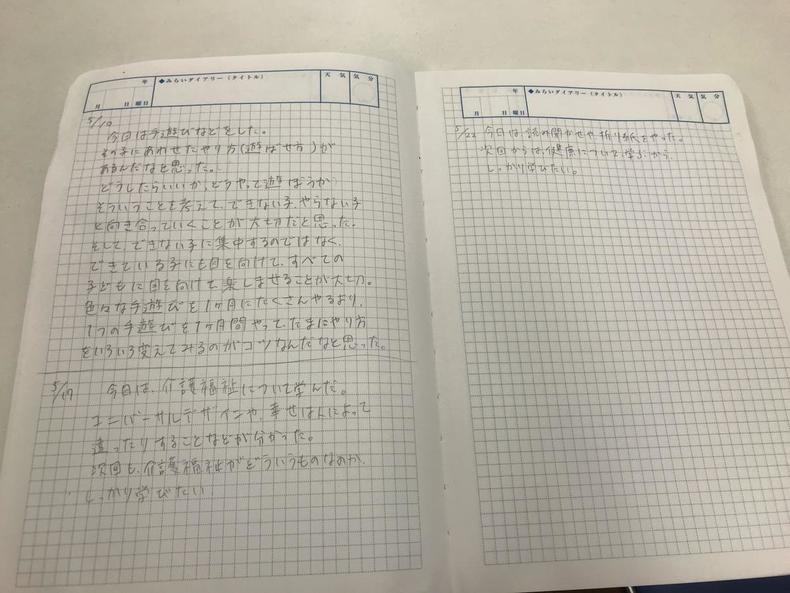 年 月 日 曜日
◆みらいダイアリー(タイトル)
天気 気分
5/10
今日は手遊びなどをした。
その子にあわせたやり方(遊ばせ方)が
あるんだなと思った。
どうしたらいいか、どうやって遊ぼうか
そういうことを考えて、できない子、やらない子
と向き合っていくことが大切だと思った。
そして、できない子に集中するのではなく、
できている子にも目を向けて、すべての
子どもに目を向けて楽しませることが大切。
色々な手遊びを1ヶ月にたくさんやるより、
1つの手遊びを1ヶ月間やって、たまにやり方
をいろいろ変えてみるのがコツなんだなと思った。
5/17
今日は、介護福祉について学んだ。
ユニバーサルデザインや、幸せは人によって
違ったりすることなどが分かった。
次回も、介護福祉がどういうものなのか、
しっかり学びたい
年 月 日 曜日
◆みらいダイアリー(タイトル)
天気 気分
今日は、読み聞かせや折り紙をやった。
次回からは、健康について学ぶから、
しっかり学びたい。